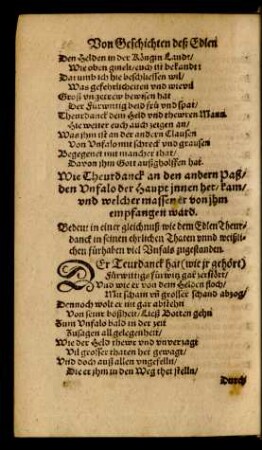 Von Geschichten deß Edlen
Den Helden in der Köngin Landt/
Wie oben gmelt/euch ist bekandt:
Darumb ich hie beschliessen wil/
Was gefehrlicheiten vnd wievil
Groß vngetrew bewisen hat
Der Fürwittig beid frü vnd spat/
Theurdanck dem Held vnd thewren Mann.
Hie weiter euch auch zeigen an/
Was jhm ist an der andern Clausen
Von Vnfalo mit schreck vnd grausen
Begegenet mit mancher that/
Davon jhm Gott außgholffen hat.
Wie Theurdanck an den andern Paß/
den Vnfalo der Haupt jnnen het/ kam/
vnd welcher massen er von jhm
empfangen ward.
Bedeut in einer gleichnuß wie dem Edlen Theur-
danck in seinen ehrlichen Thaten vnnd weißli-
chen fürhaben viel Vnfals zugestanden.
DEr Teurdanck hat (wie jr gehört)
Fürwittigs fürwitz gar zerstört/
Vnd wie er von dem Helden floch/
Mit scham vñ grosser schand abzog/
Dennoch wolt er nit gar abstehn
Von seinr boßheit/ Ließ Botten gehn
Zum Vnfalo bald in der zeit
Zusagen all gelegenheit/
Wie der Held thewr vnd vnverzagt
Vil grosser thaten het gewagt/
Vnd doch auß allen vngefelln/
Die er jhm in den Weg thet stelln/
Durch